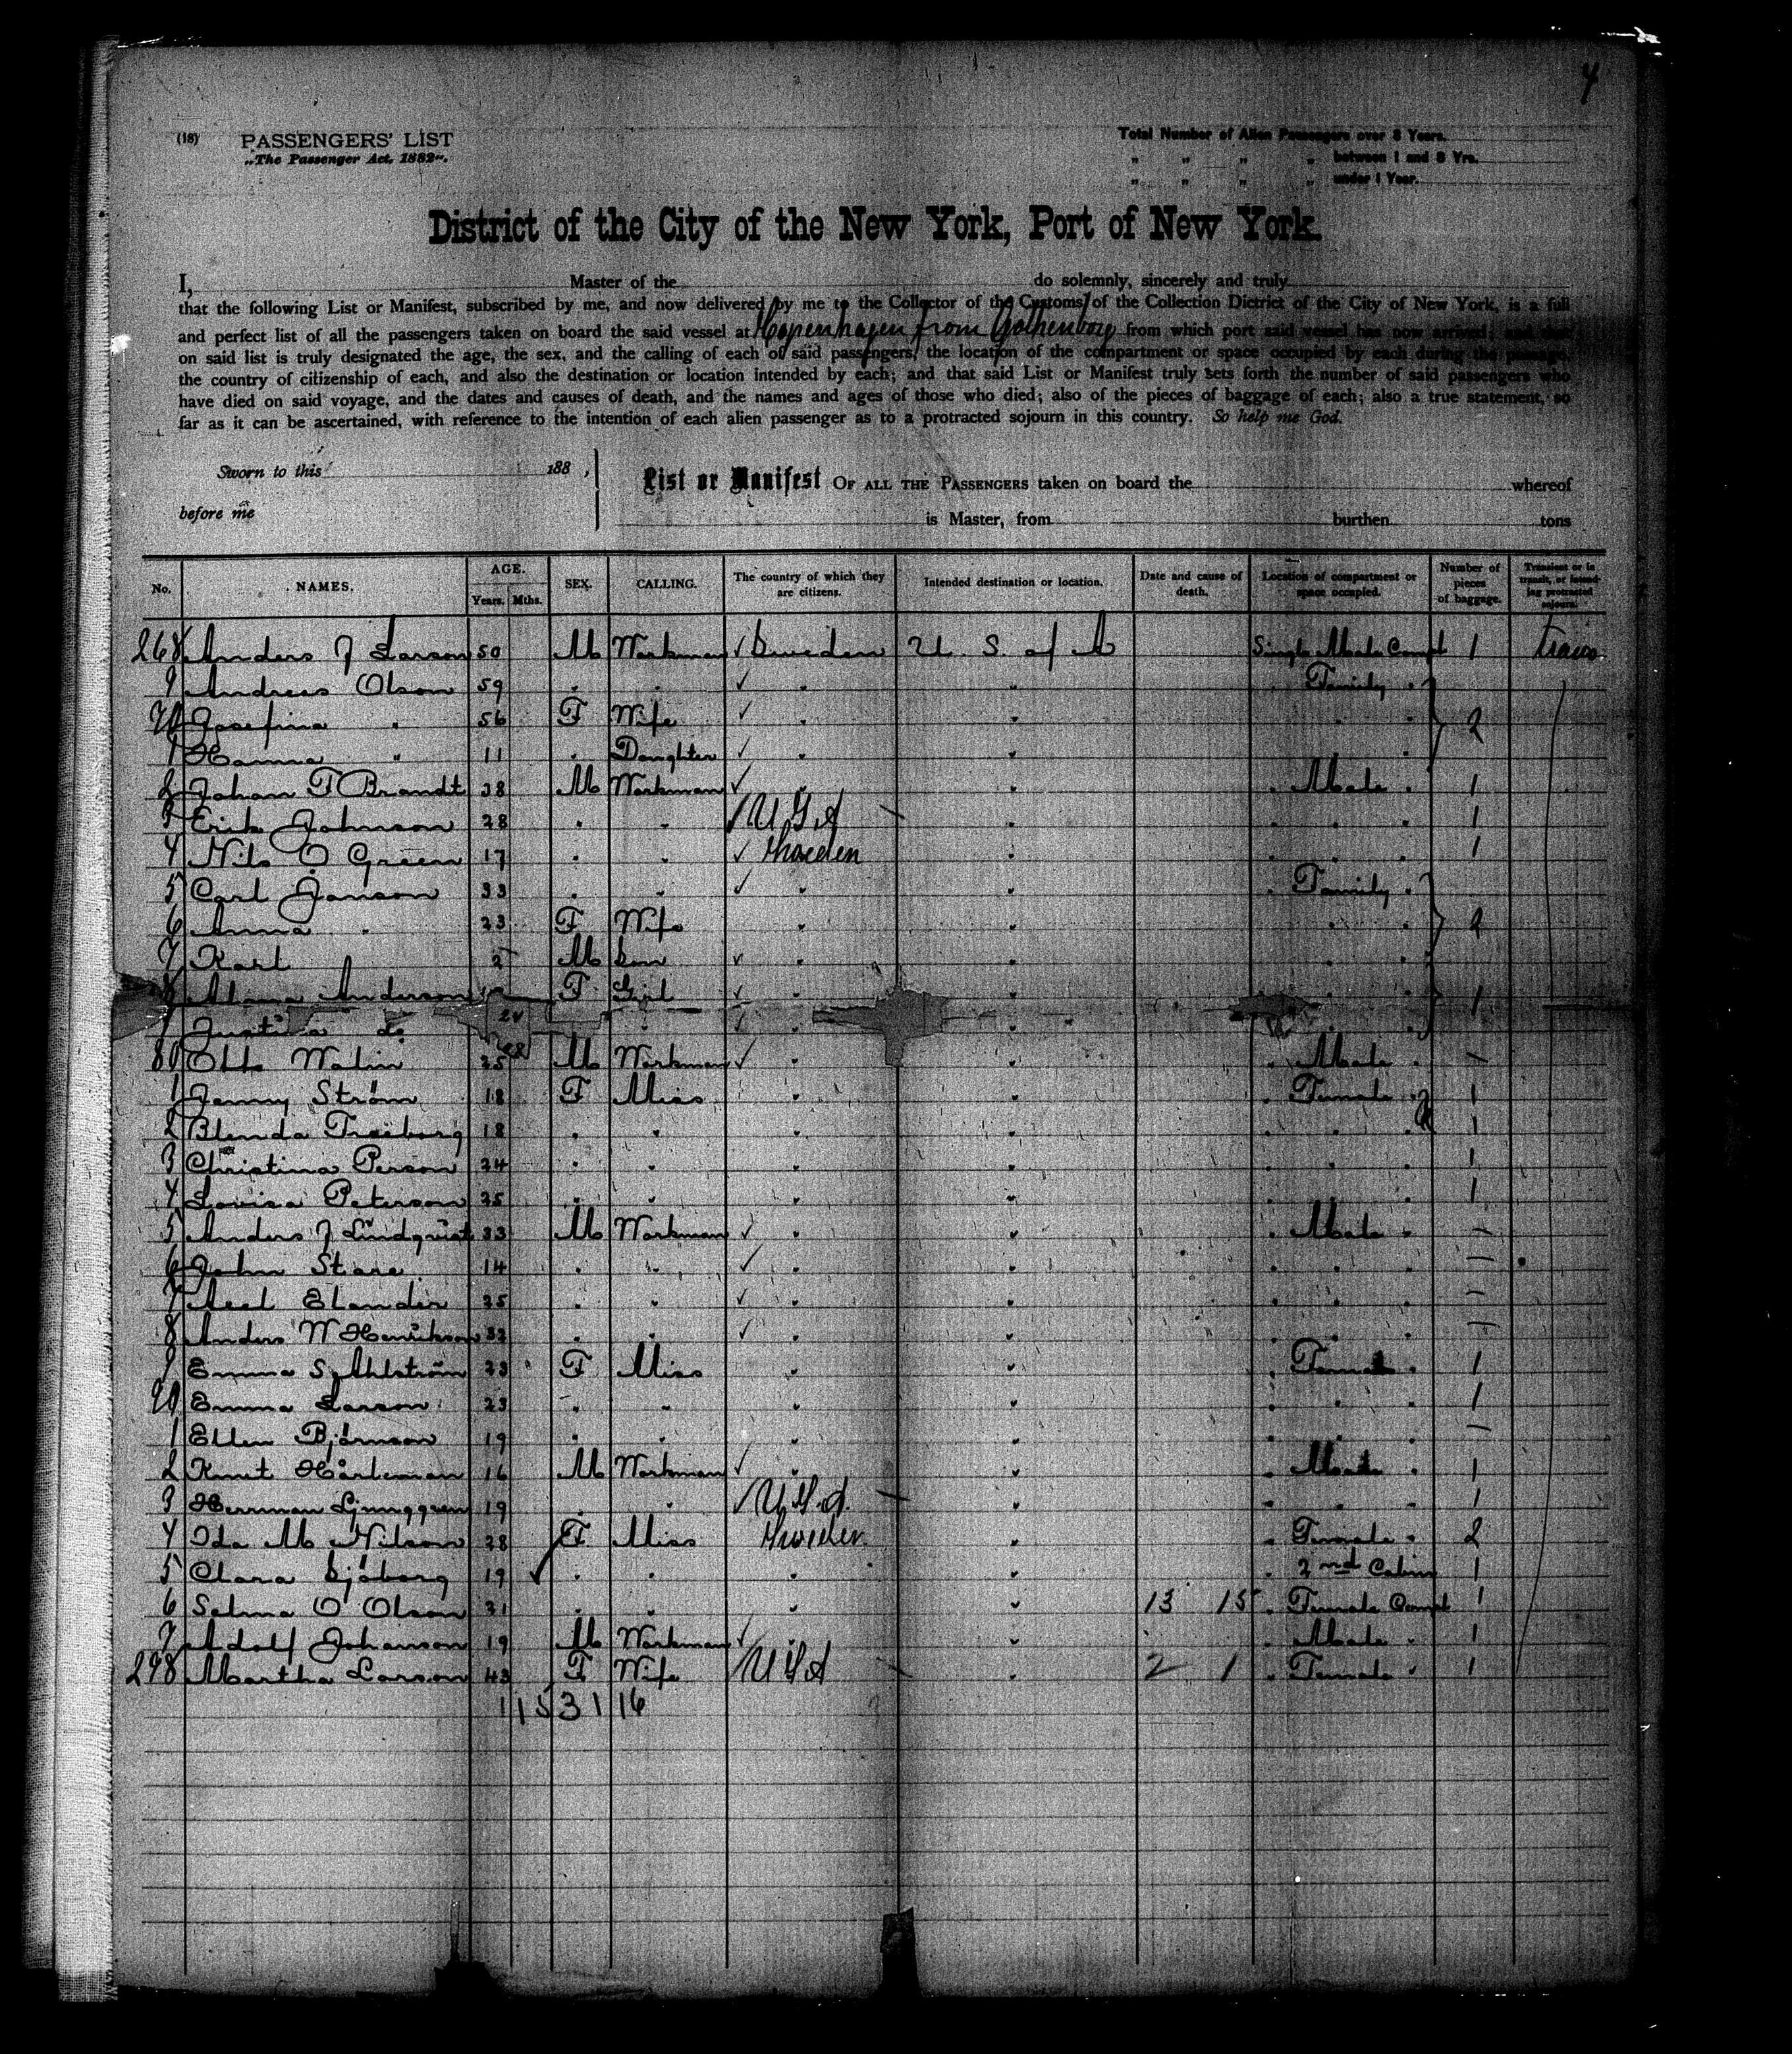 4
(18) PASSENGERS' LIST
„The Passenger Act, 1882“.
Total Number of Alien Passengers over 8 Years.
„ „ „ „ between 1 and 8 Yrs.
„ „ „ „ under 1 Year.
District of the City of the New York, Port of New York.
I, Master of the do solemnly, sincerely and truly
that the following List or Manifest, subscribed by me, and now delivered by me to the Collector of the Customs of the Collection District of the City of New York, is a full
and perfect list of all the passengers taken on board the said vessel at Copenhagen from Gothenborg from which port said vessel has now arrived; and that
on said list is truly designated the age, the sex, and the calling of each of said passengers, the location of the compartment or space occupied by each during the passage,
the country of citizenship of each, and also the destination or location intended by each; and that said List or Manifest truly sets forth the number of said passengers who
have died on said voyage, and the dates and causes of death, and the names and ages of those who died; also of the pieces of baggage of each; also a true statement, so
far as it can be ascertained, with reference to the intention of each alien passenger as to a protracted sojourn in this country. So help me God.
Sworn to this 188 ,
before me
List or Manifest OF ALL THE PASSENGERS taken on board the whereof
is Master, from burthen tons
No. NAMES. AGE. Years. Mths. SEX. CALLING. The country of which they are citizens. Intended destination or location. Date and cause of death. Location of compartment or space occupied. Number of pieces of baggage. Transient or in transit, or intending protracted sojourn.
268 Anders J Larson 50 M Workman ✓ Sweden U. S. of A Single Male Compt 1
9 Andreas Olson 59 " " ✓ " " " Family "
70 Josefina " 56 F Wife ✓ " " " " " 2
1 Hanna " 11 " Daughter ✓ " " "
2 Johan F Brandt 38 M Workman ✓ " " " Male " 1
3 Erik Johnson 28 " " ✓ U.S.A " " " " 1
4 Nils O Green 17 " " ✓ Sweden " " " " 1
5 Carl Janson 33 " " ✓ " " " Family "
6 Anna " 23 F Wife " " " " " 2
7 Karl 2 M Son ✓ " " " " "
8 Alma Anderson F Girl ✓ " " " " " 1
9 Justina do " ✓ " " " " "
80 Otto Walin 25 M Workman ✓ " " " Male " –
1 Jenny Ström 18 F Miss " " " Female " 1
2 Blenda Freiborg 18 " " " " " " " 1
3 Christina Person 24 " " " " " " " 1
4 Lovisa Peterson 25 " " " " " " " 1
5 Anders J Lindquist 33 M Workman ✓ " " " Male " –
6 John Stare 14 " " ✓ " " " " " –
7 Axel Elander 25 " " ✓ " " " " " –
8 Anders W Henrikson 32 " " ✓ " " " " " –
9 Emma S. Ahlström 23 F Miss " " " Female " 1
90 Emma Larson 23 " " " " " " " 1
1 Ellen Björnson 19 " " " " " " " –
2 Knut Hårleman 16 M Workman ✓ " " " Male " 1
3 Herrman Ljunggren 19 " " ✓ U.S.A. " " " " 1
4 Ida M Nilson 28 F Miss Sweden " " Female " 2
5 Clara Sjöborg 19 ✓ " " " " " 2nd Cabin 1
6 Selma O Olson 21 " " " " 13 15 " Female Compt 1
7 Adolf Johanson 19 M Workman ✓ " " " Male " 1
298 Martha Larson 43 F Wife ✓ U.S.A " 2 1 " Female " 1